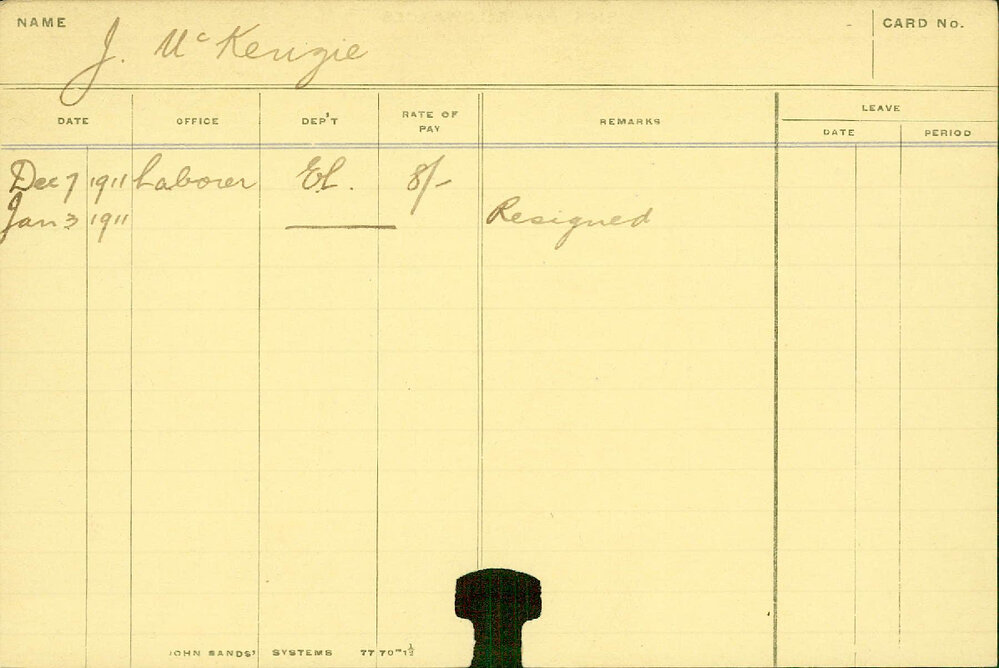 NAME J. McKenzie CARD No.
DATE OFFICE DEP'T RATE OF PAY REMARKS LEAVE
DATE PERIOD
Dec 7 1911 Laborer El. 8/-
Jan 3 1911 Resigned
JOHN SANDS' SYSTEMS 77 70